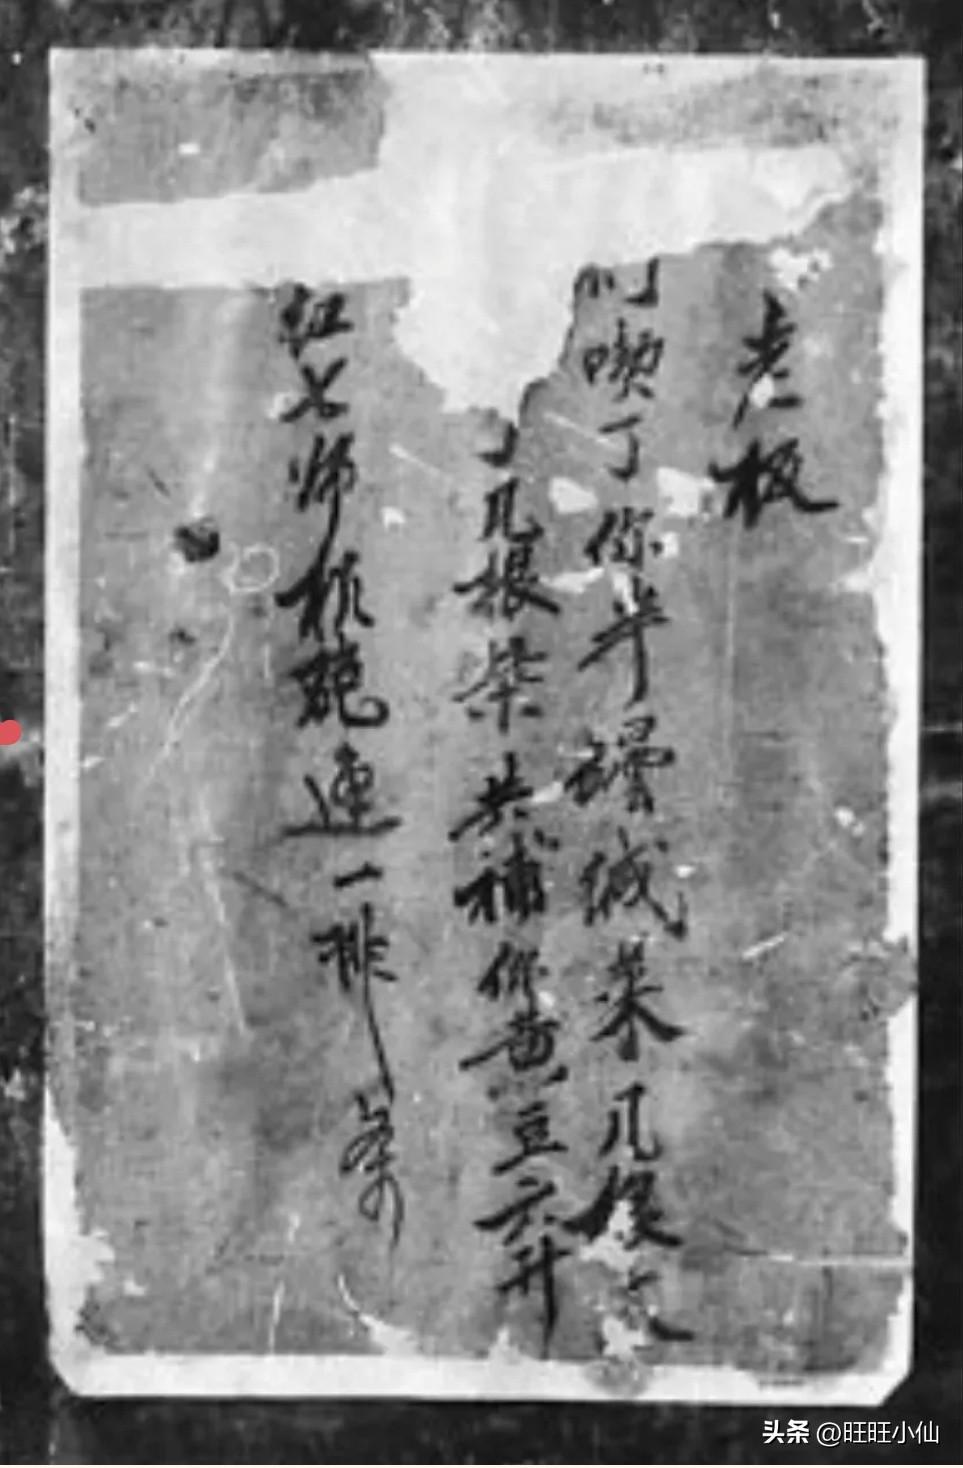 老板
们喫了你半罎咸菜几根
了几根柴共補你黄豆六升
红七师机炮连一排
头条 @旺旺小仙